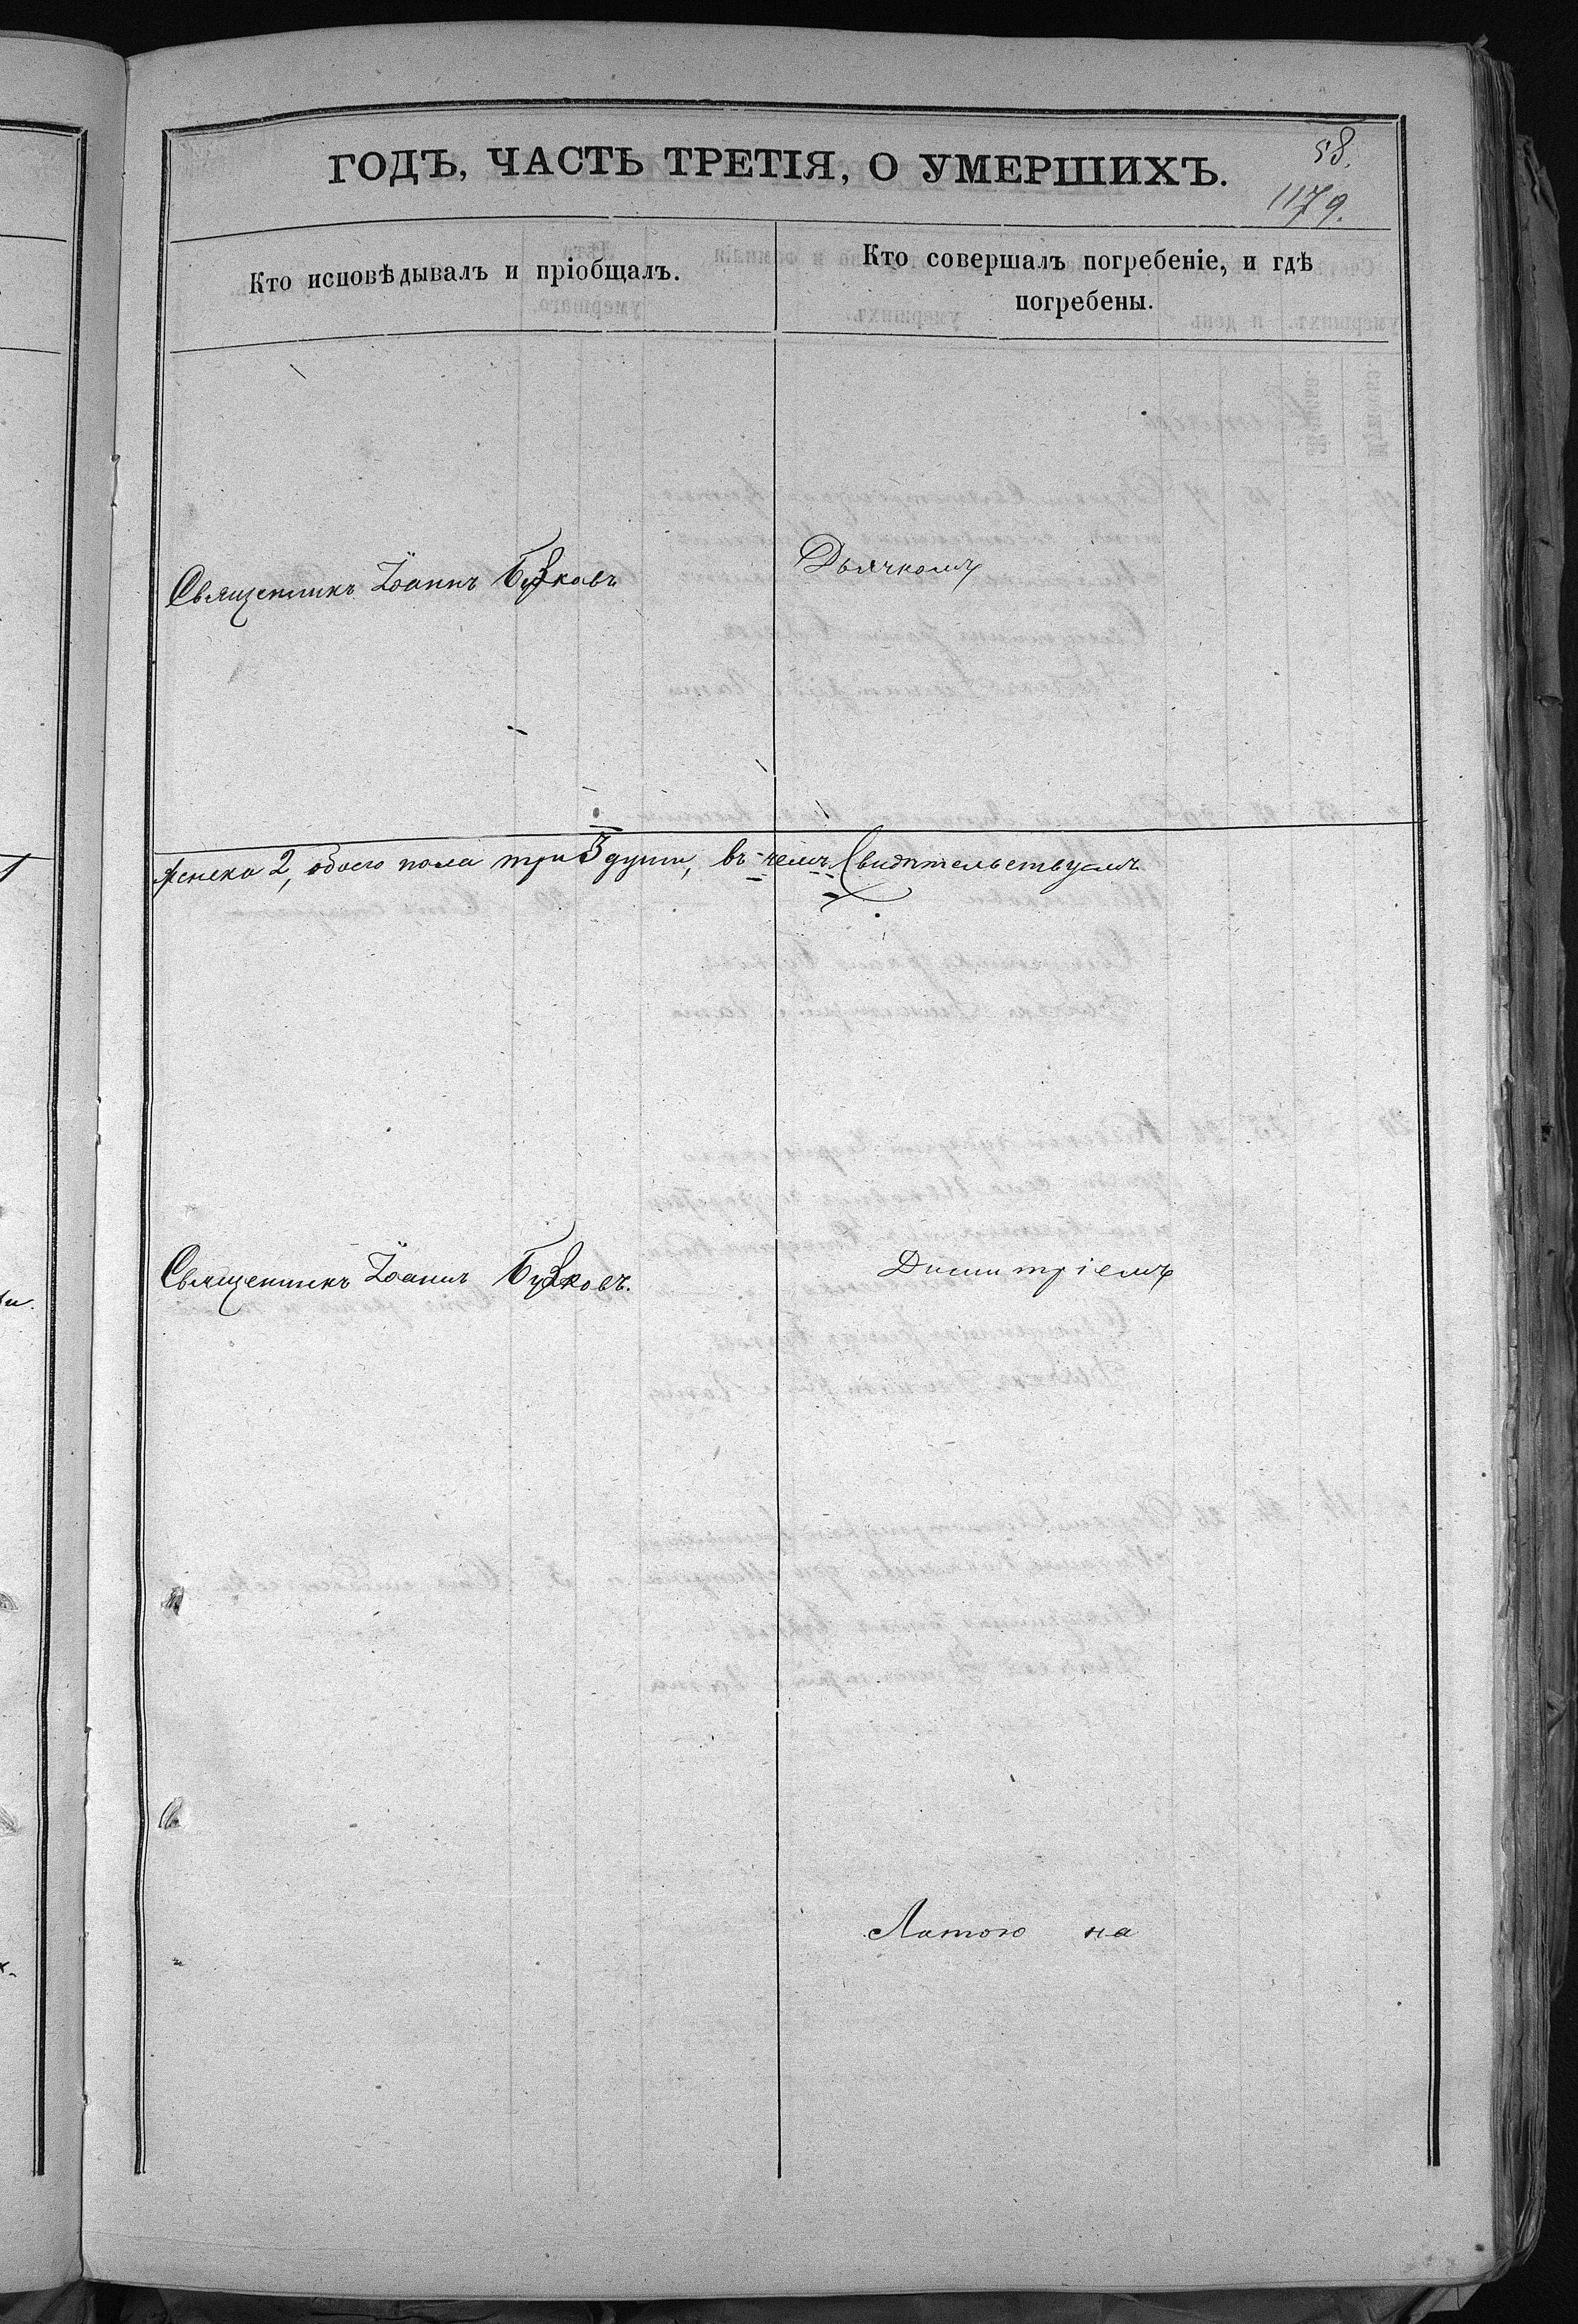 58.
1179.
ГОДЪ, ЧАСТЬ ТРЕТІЯ, О УМЕРШИХЪ.
Кто исповѣдывалъ и пріобщалъ.
Кто совершалъ погребеніе, и гдѣ
погребены.
Священникъ Іоаннъ
Дьячкомъ
женска 2, обоего пола три 3 души, въ чемъ Свидѣтельствуемъ
Священникъ Іоаннъ
Димитріемъ
на